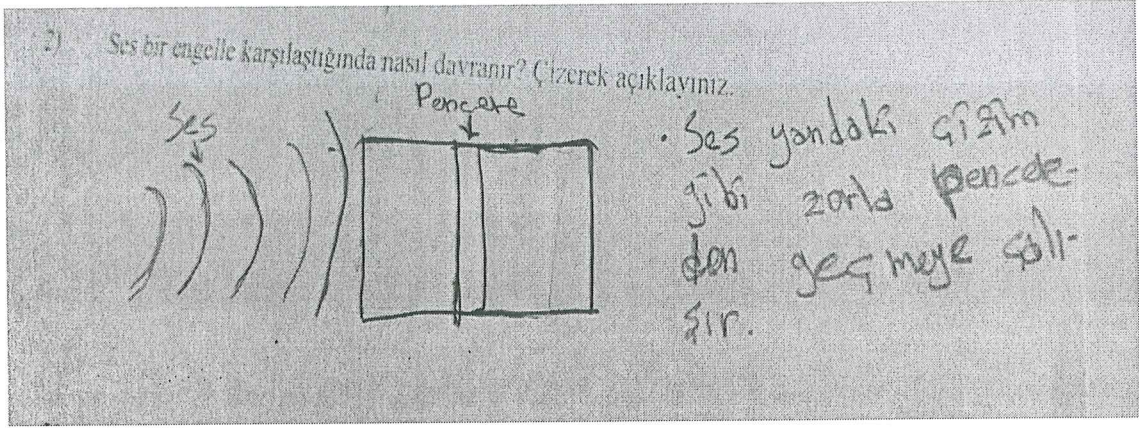 2) Ses bir engelle karşılaştığında nasıl davranır? Çizerek açıklayınız.
Ses
Pencere
• Ses yandaki çizim
gibi zorla pencde-
den geçmeye çalı-
şır.